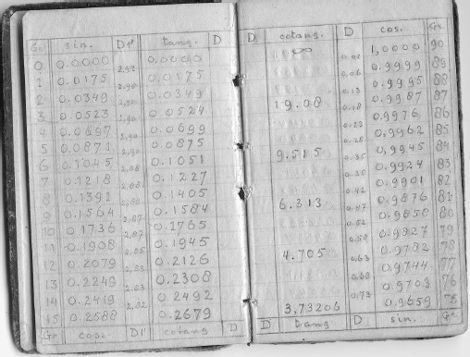 Gr. sin. D1' tang. D
0 0.0000 2,92 0.0000
1 0.0175 0.0175
2 0.0349 0.0349
3 0.0523 0.0524
4 0.0697 0.0699
5 0.0871 0.0875
6 0.1045 0.1051
7 0.1218 0.1227
8 0.1391 0.1405
9 0.1564 2,87 0.1584
10 0.1736 0.1765
11 0.1908 0.1945
12 0.2079 0.2126
13 0.2249 0.2308
14 0.2419 2,82 0.2492
15 0.2588 0.2679
Gr. cos. D1' cotang D
D cotang. D cos. Gr.
∞ 1,0000 90
0.9999 89
0.9995 88
19.08 0.9987 87
0.9976 86
0.9962 85
9.515 0.9945 84
0.9924 83
0.9901 82
6.313 0.9876 81
0.9850 80
0.9927 79
4.705 0.63 0.9782 78
0.68 0.9744 77
0.73 0.9703 76
3,73206 0.9659 75
D tang D. sin. Gr.